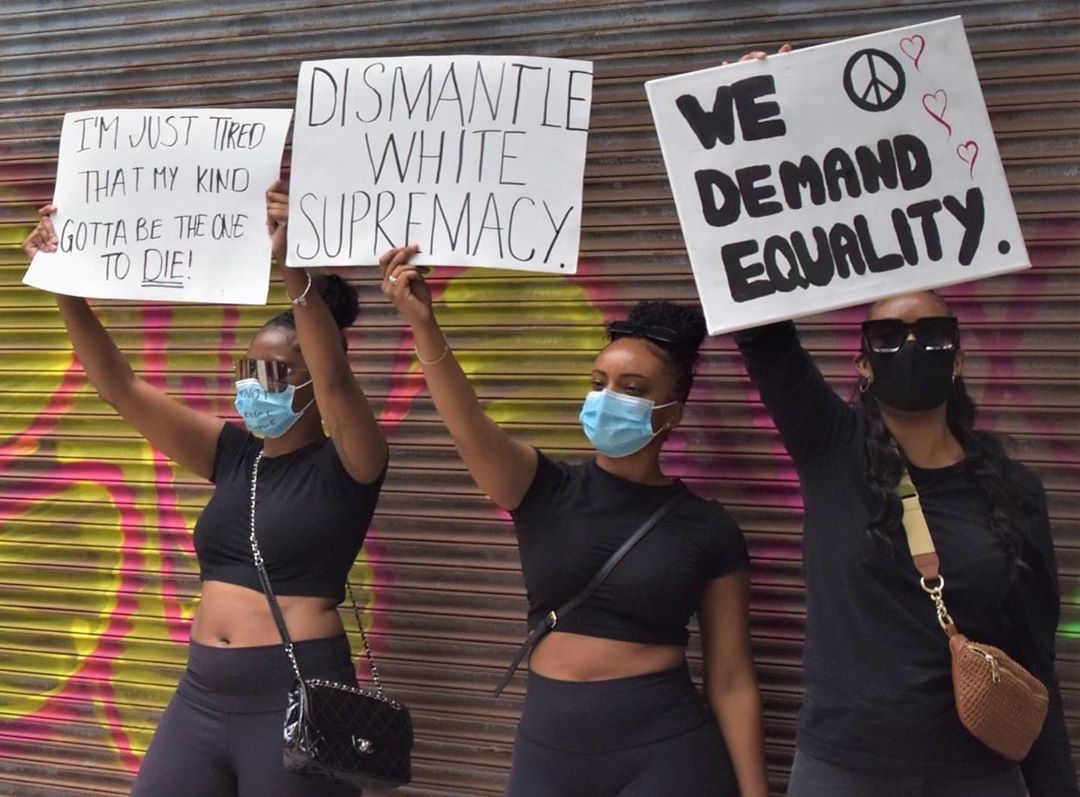 I'M JUST TIRED
THAT MY KIND
GOTTA BE THE ONE
TO DIE!
DISMANTLE
WHITE
SUPREMACY.
WE
DEMAND
EQUALITY.